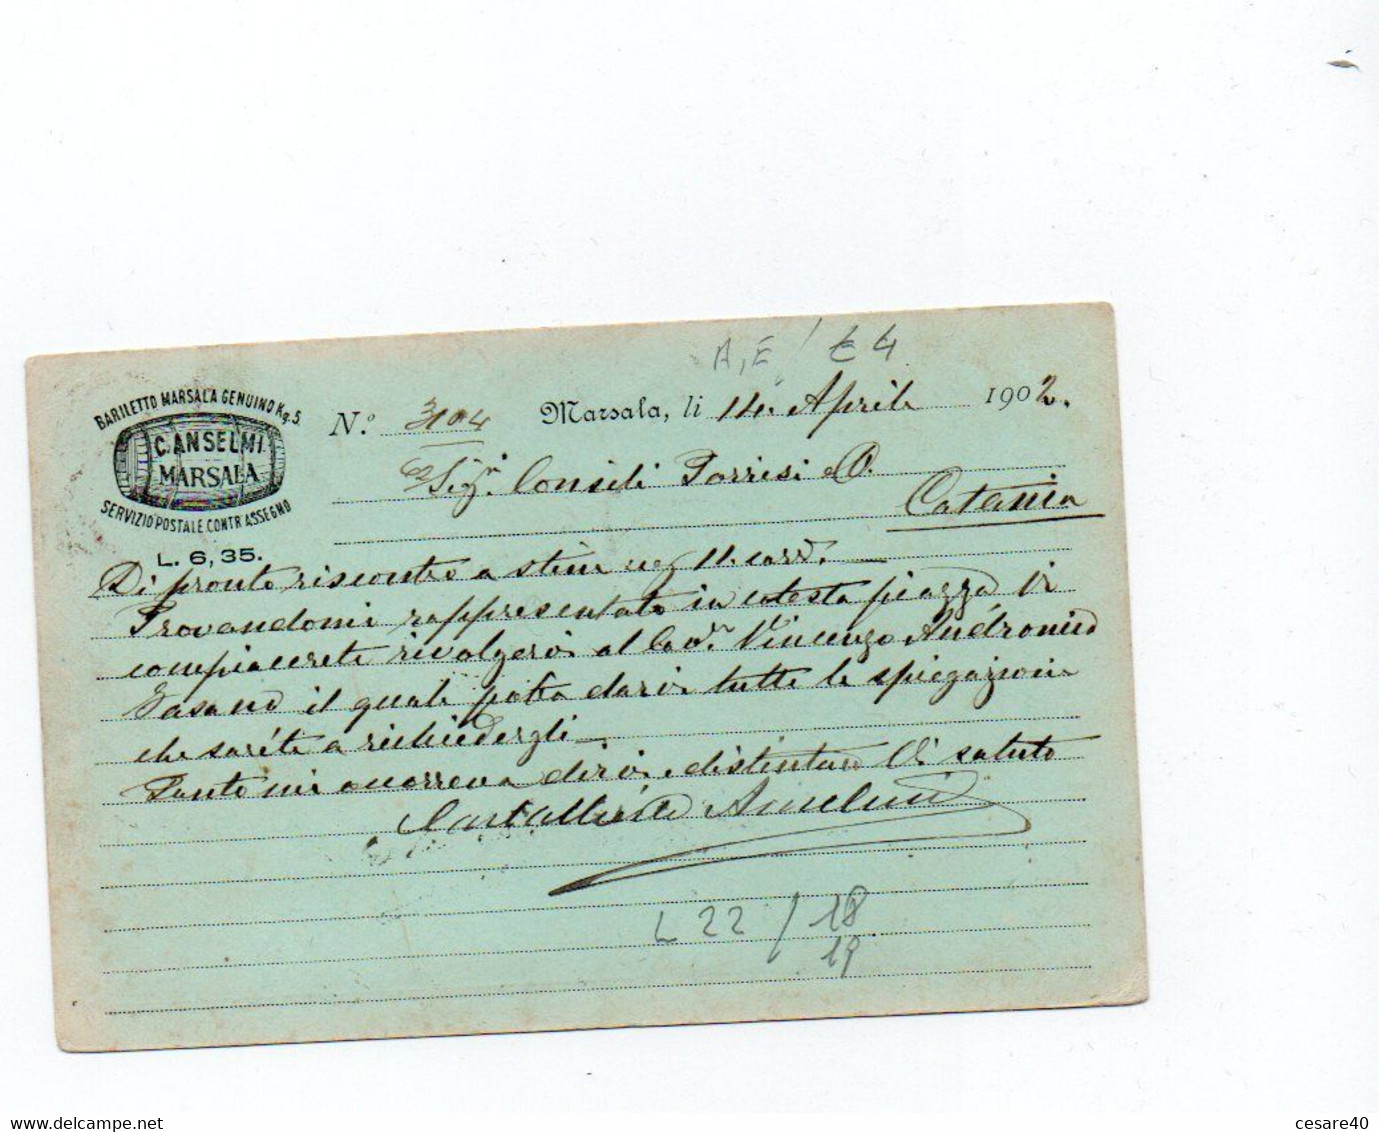 A, E / € 4
BARILETTO MARSALA GENUINO Kg. 5.
C. ANSELMI
MARSALA
SERVIZIO POSTALE CONTR'ASSEGNO
L. 6, 35.
N.° 3104 Marsala, li 14. Aprile 1902.
Sigri. Consili Torrisi & C.
Catania
Di pronto riscontro a 11. corr.
Trovandomi rappresentato in cotesta piazza Vi
compiacerete rivolgervi al Cav. Vincenzo Andronico
il quale potrà darvi tutte le spiegazioni
che sarete a richiedergli –
Tanto mi occorreva dirvi, e distintam Vi saluto
Anselmi
L 22 / 18
19
www.delcampe.net
cesare40